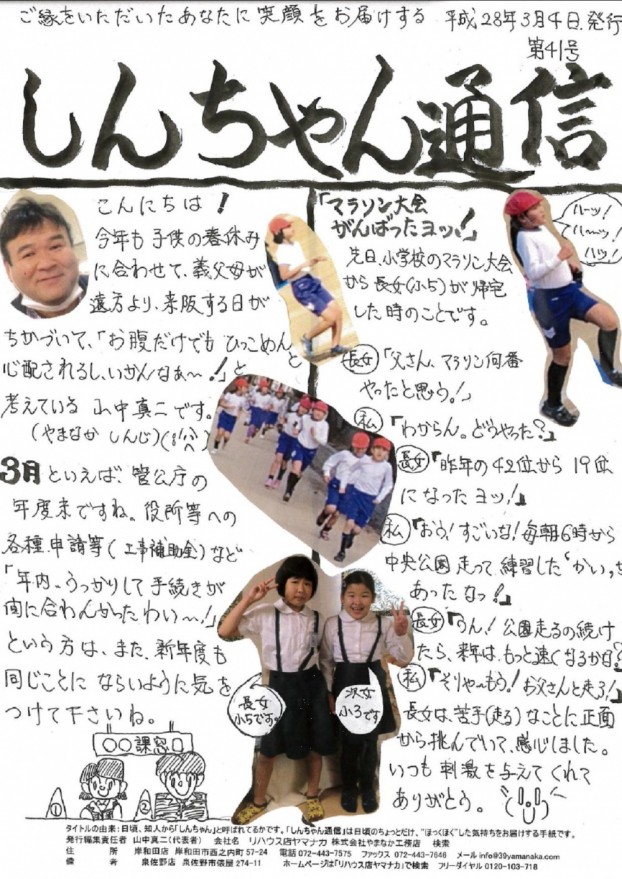 ご縁をいただいたあなたに笑顔をお届けする 平成28年3月4日発行
第41号
しんちゃん通信
こんにちは!
今年も子供の春休み
に合わせて、義父母が
遠方より、来阪する日が
ちかづいて、「お腹だけでもひっこめんと
心配されるし、いかんなぁ〜!」と
考えている 山中真二です。
(やまなか しんじ)(;^^)
3月といえば、官公庁の
年度末ですね。役所等への
各種申請等(工事補助金)など
「年内、うっかりして手続きが
間に合わんかったわい〜!」
という方は、また、新年度も
同じことに ならないように気を
つけて下さいね。
○○課窓口
① ②
「マラソン大会
がんばったヨッ!」
先日、小学校のマラソン大会
から長女(小5)が帰宅
した時のことです。
長女「父さん、マラソン何番
やったと思う!」
私「わからん。どうやった?」
長女「昨年の42位から19位
になったヨッ!」
私「おう!すごいな!毎朝6時から
中央公園走って練習した“かい”が
あったなっ!」
長女「うん!公園走るの続け
たら、来年は、もっと速くなるかな?」
私「そりゃーもう!お父さんと走ろ!」
長女は、苦手(走る)なことに正面
から挑んでいて、感心しました。
いつも刺激を与えてくれて
ありがとう。
ハーッ!
ハーッ!
ハッ!
長女
小5です。
次女
小3です
タイトルの由来:日頃、知人から「しんちゃん」と呼ばれてるかです。「しんちゃん通信」は日頃のちょっとだけ、“ほっくほく”した気持ちをお届けする手紙です。
発行編集責任者 山中真二(代表者) 会社名 リハウス店ヤマナカ 株式会社やまなか工務店 検索
住所 岸和田店 岸和田市西之内町57-24 電話 072-443-7575 ファックス 072-443-7646 メール info@39yamanaka.com
備考 泉佐野店 泉佐野市俵屋274-11 ホームページは「リハウス店ヤマナカ」で検索 フリーダイヤル 0120-103-718